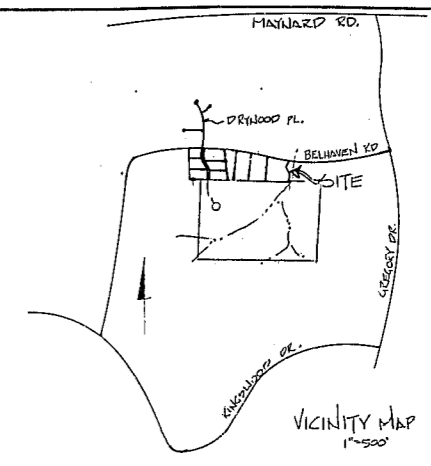 MAYNARD RD.
DRYWOOD PL.
BELHAVEN RD
SITE
GREGORY DR.
KINGSWOOD DR.
VICINITY MAP
1"=500'